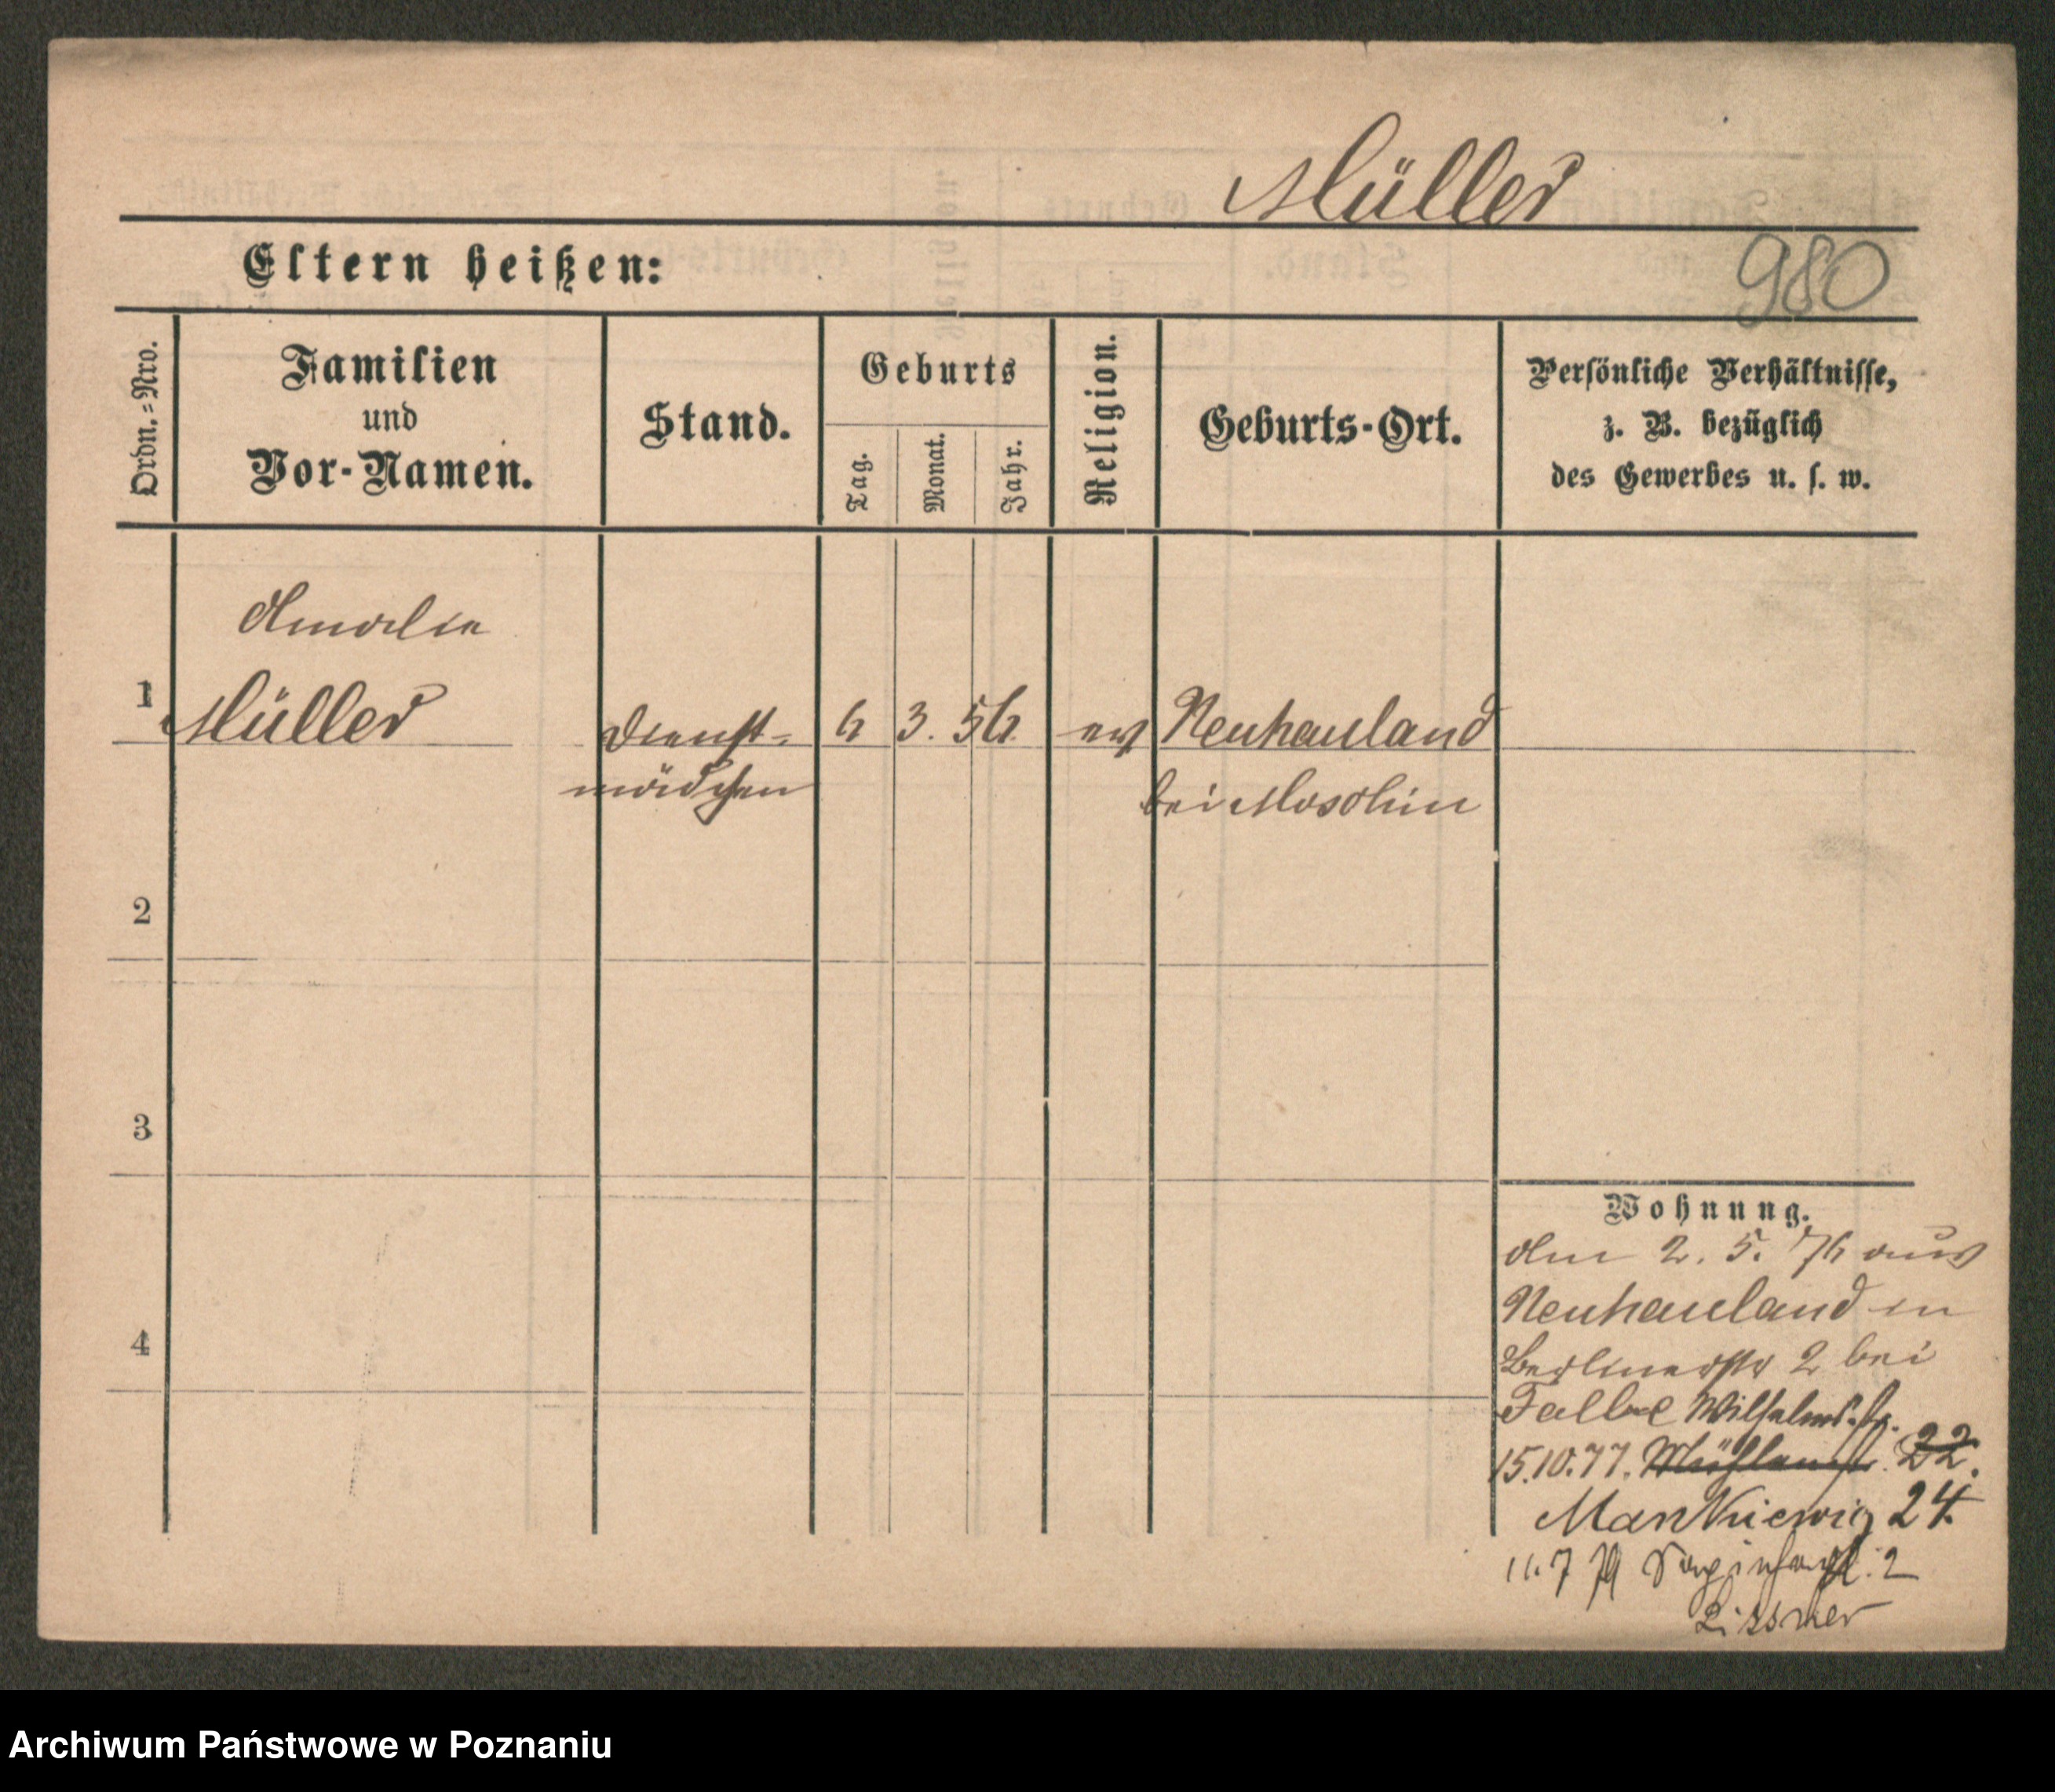 Müller
980
Eltern heißen:
Ordn.=Nro.
Familien
und
Vor-Namen.
Stand.
Geburts
Tag.
Monat.
Jahr.
Religion.
Geburts-Ort.
Persönliche Verhältnisse,
z. B. bezüglich
des Gewerbes u. s. w.
Amalie
1 Müller Dienst- 6 3. 56. ev Neuhauland
mädchen bei Moschin
2
3
4
Wohnung.
Am 2. 5. 76 aus
Neuhauland in
Berlinerstr 2 bei
Falbe Wilhelmsstr.
15.10.77. Mühlenstr. 22.
Mankiewicz 24.
11.7 79 2
Lissner
Archiwum Państwowe w Poznaniu